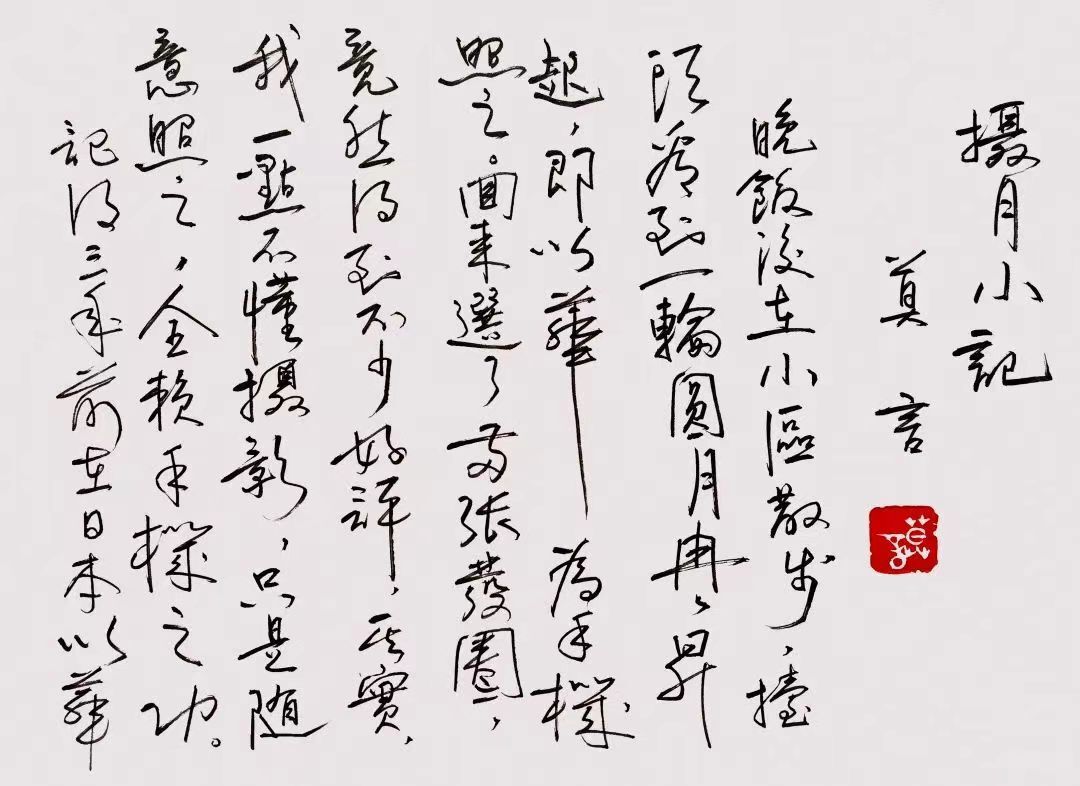 攝月小記
莫言
晚飯後在小區散步，擡
頭看到一輪圓月冉冉昇
起，即以華為手機
照之。回來選了兩張發圈，
竟然得到不少好評，其實，
我一點不懂攝影，只是随
意照之，全賴手機之功。
記得三年前在日本以華